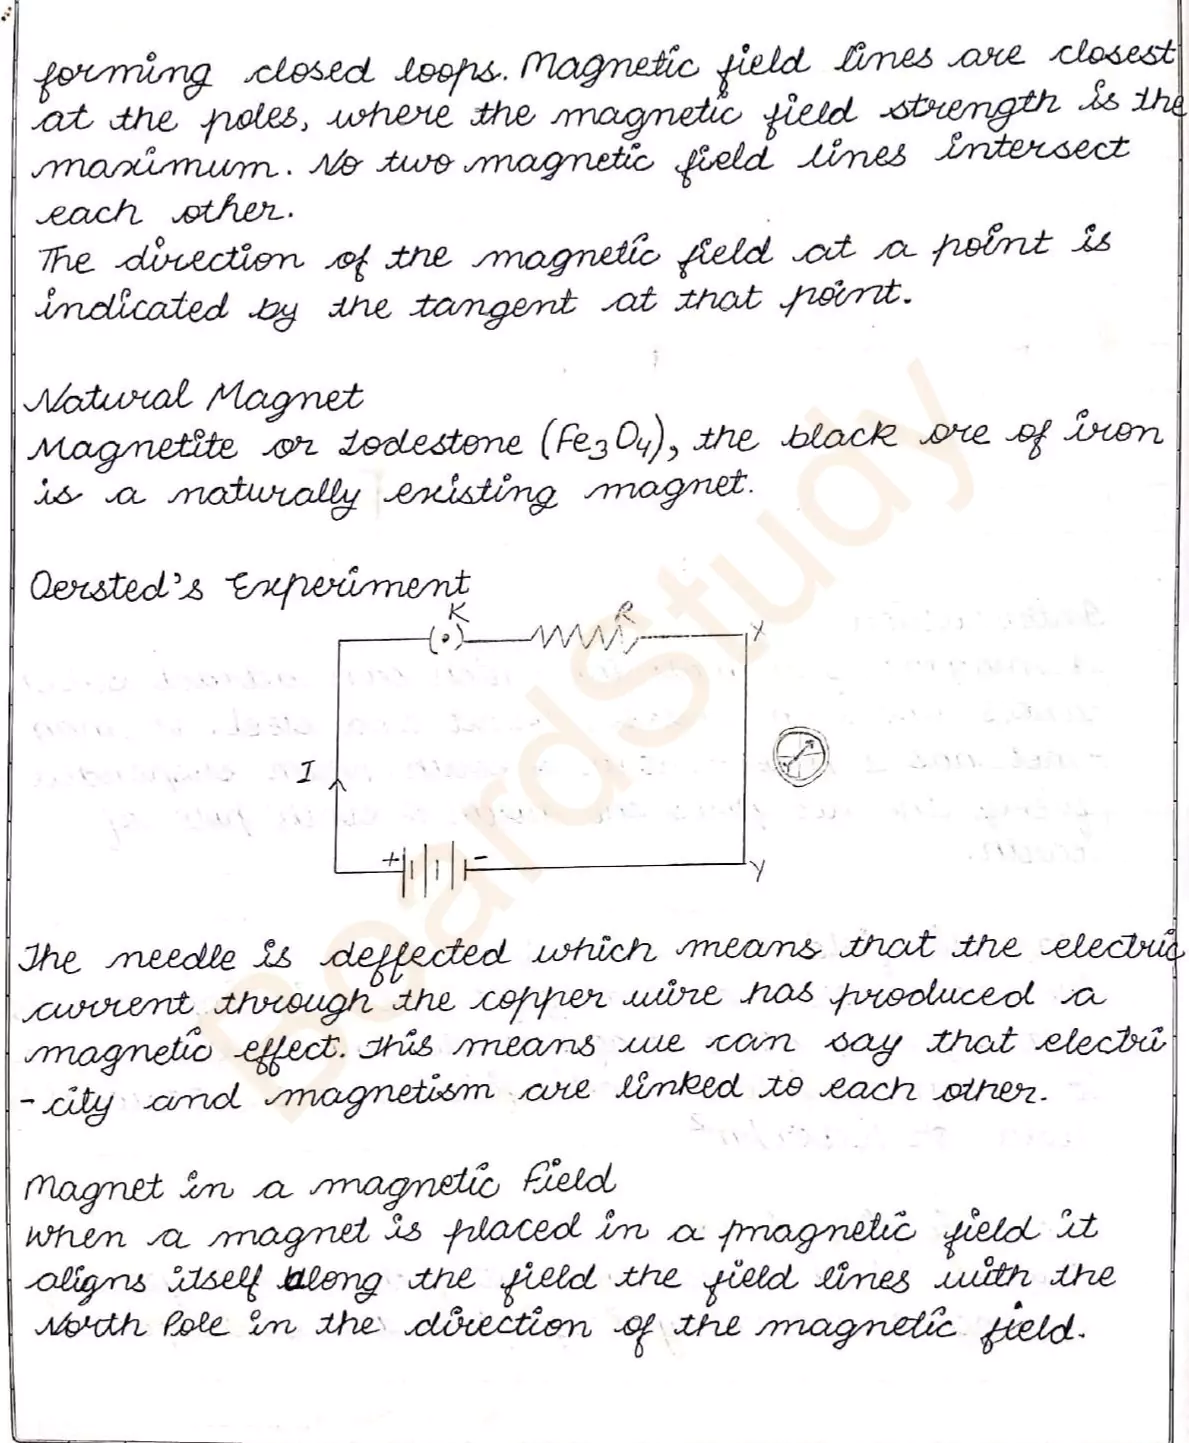 forming closed loops. Magnetic field lines are closest
at the poles, where the magnetic field strength is the
maximum. No two magnetic field lines intersect
each other.
The direction of the magnetic field at a point is
indicated by the tangent at that point.
Natural Magnet
Magnetite or Lodestone (Fe3O4), the black ore of iron
is a naturally existing magnet.
Oersted's Experiment
K
R
X
I
+
-
Y
The needle is deffected which means that the electric
current through the copper wire has produced a
magnetic effect. This means we can say that electri
-city and magnetism are linked to each other.
Magnet in a magnetic Field
When a magnet is placed in a magnetic field it
aligns itself along the field the field lines with the
North Pole in the direction of the magnetic field.
BoardStudy